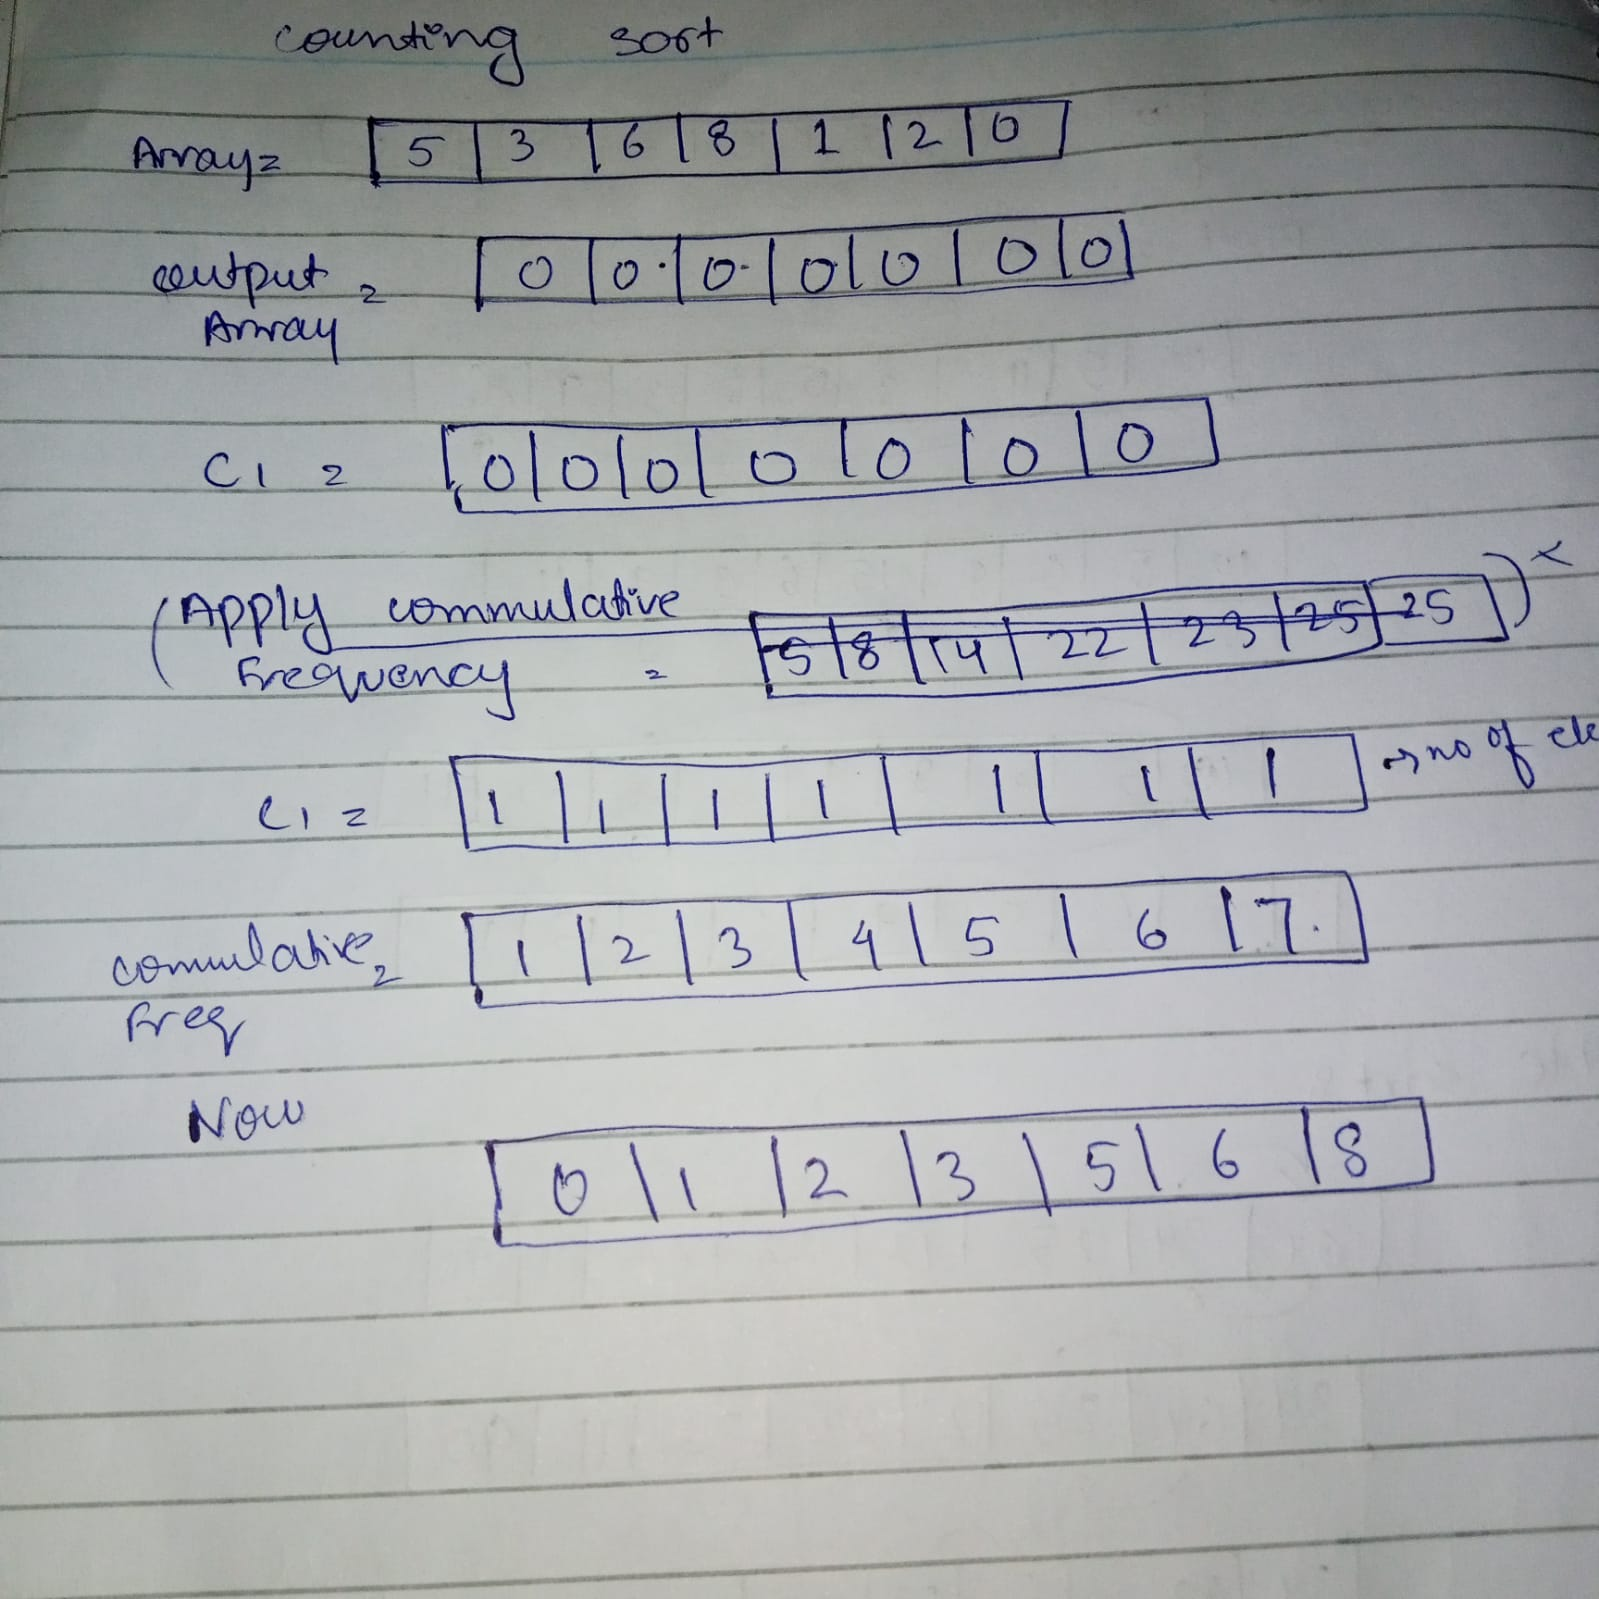 counting sort
Array = 5 | 3 | 6 | 8 | 1 | 2 | 0
output = 0 | 0 | 0 | 0 | 0 | 0 | 0
Array
C1 = 0 | 0 | 0 | 0 | 0 | 0 | 0
(Apply commulative
Frequency = 5 | 8 | 14 | 22 | 23 | 25 | 25 ) x
C1 = 1 | 1 | 1 | 1 | 1 | 1 | 1 → no of ele
comulative = 1 | 2 | 3 | 4 | 5 | 6 | 7
Freq
Now
0 | 1 | 2 | 3 | 5 | 6 | 8